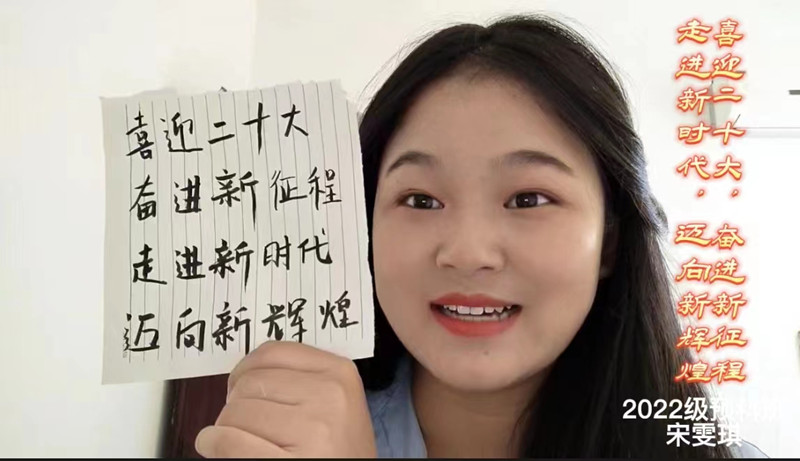 喜迎二十大
奋进新征程
走进新时代
迈向新辉煌
喜迎二十大，奋进新征程
走进新时代，迈向新辉煌
2022级预科班
宋雯琪